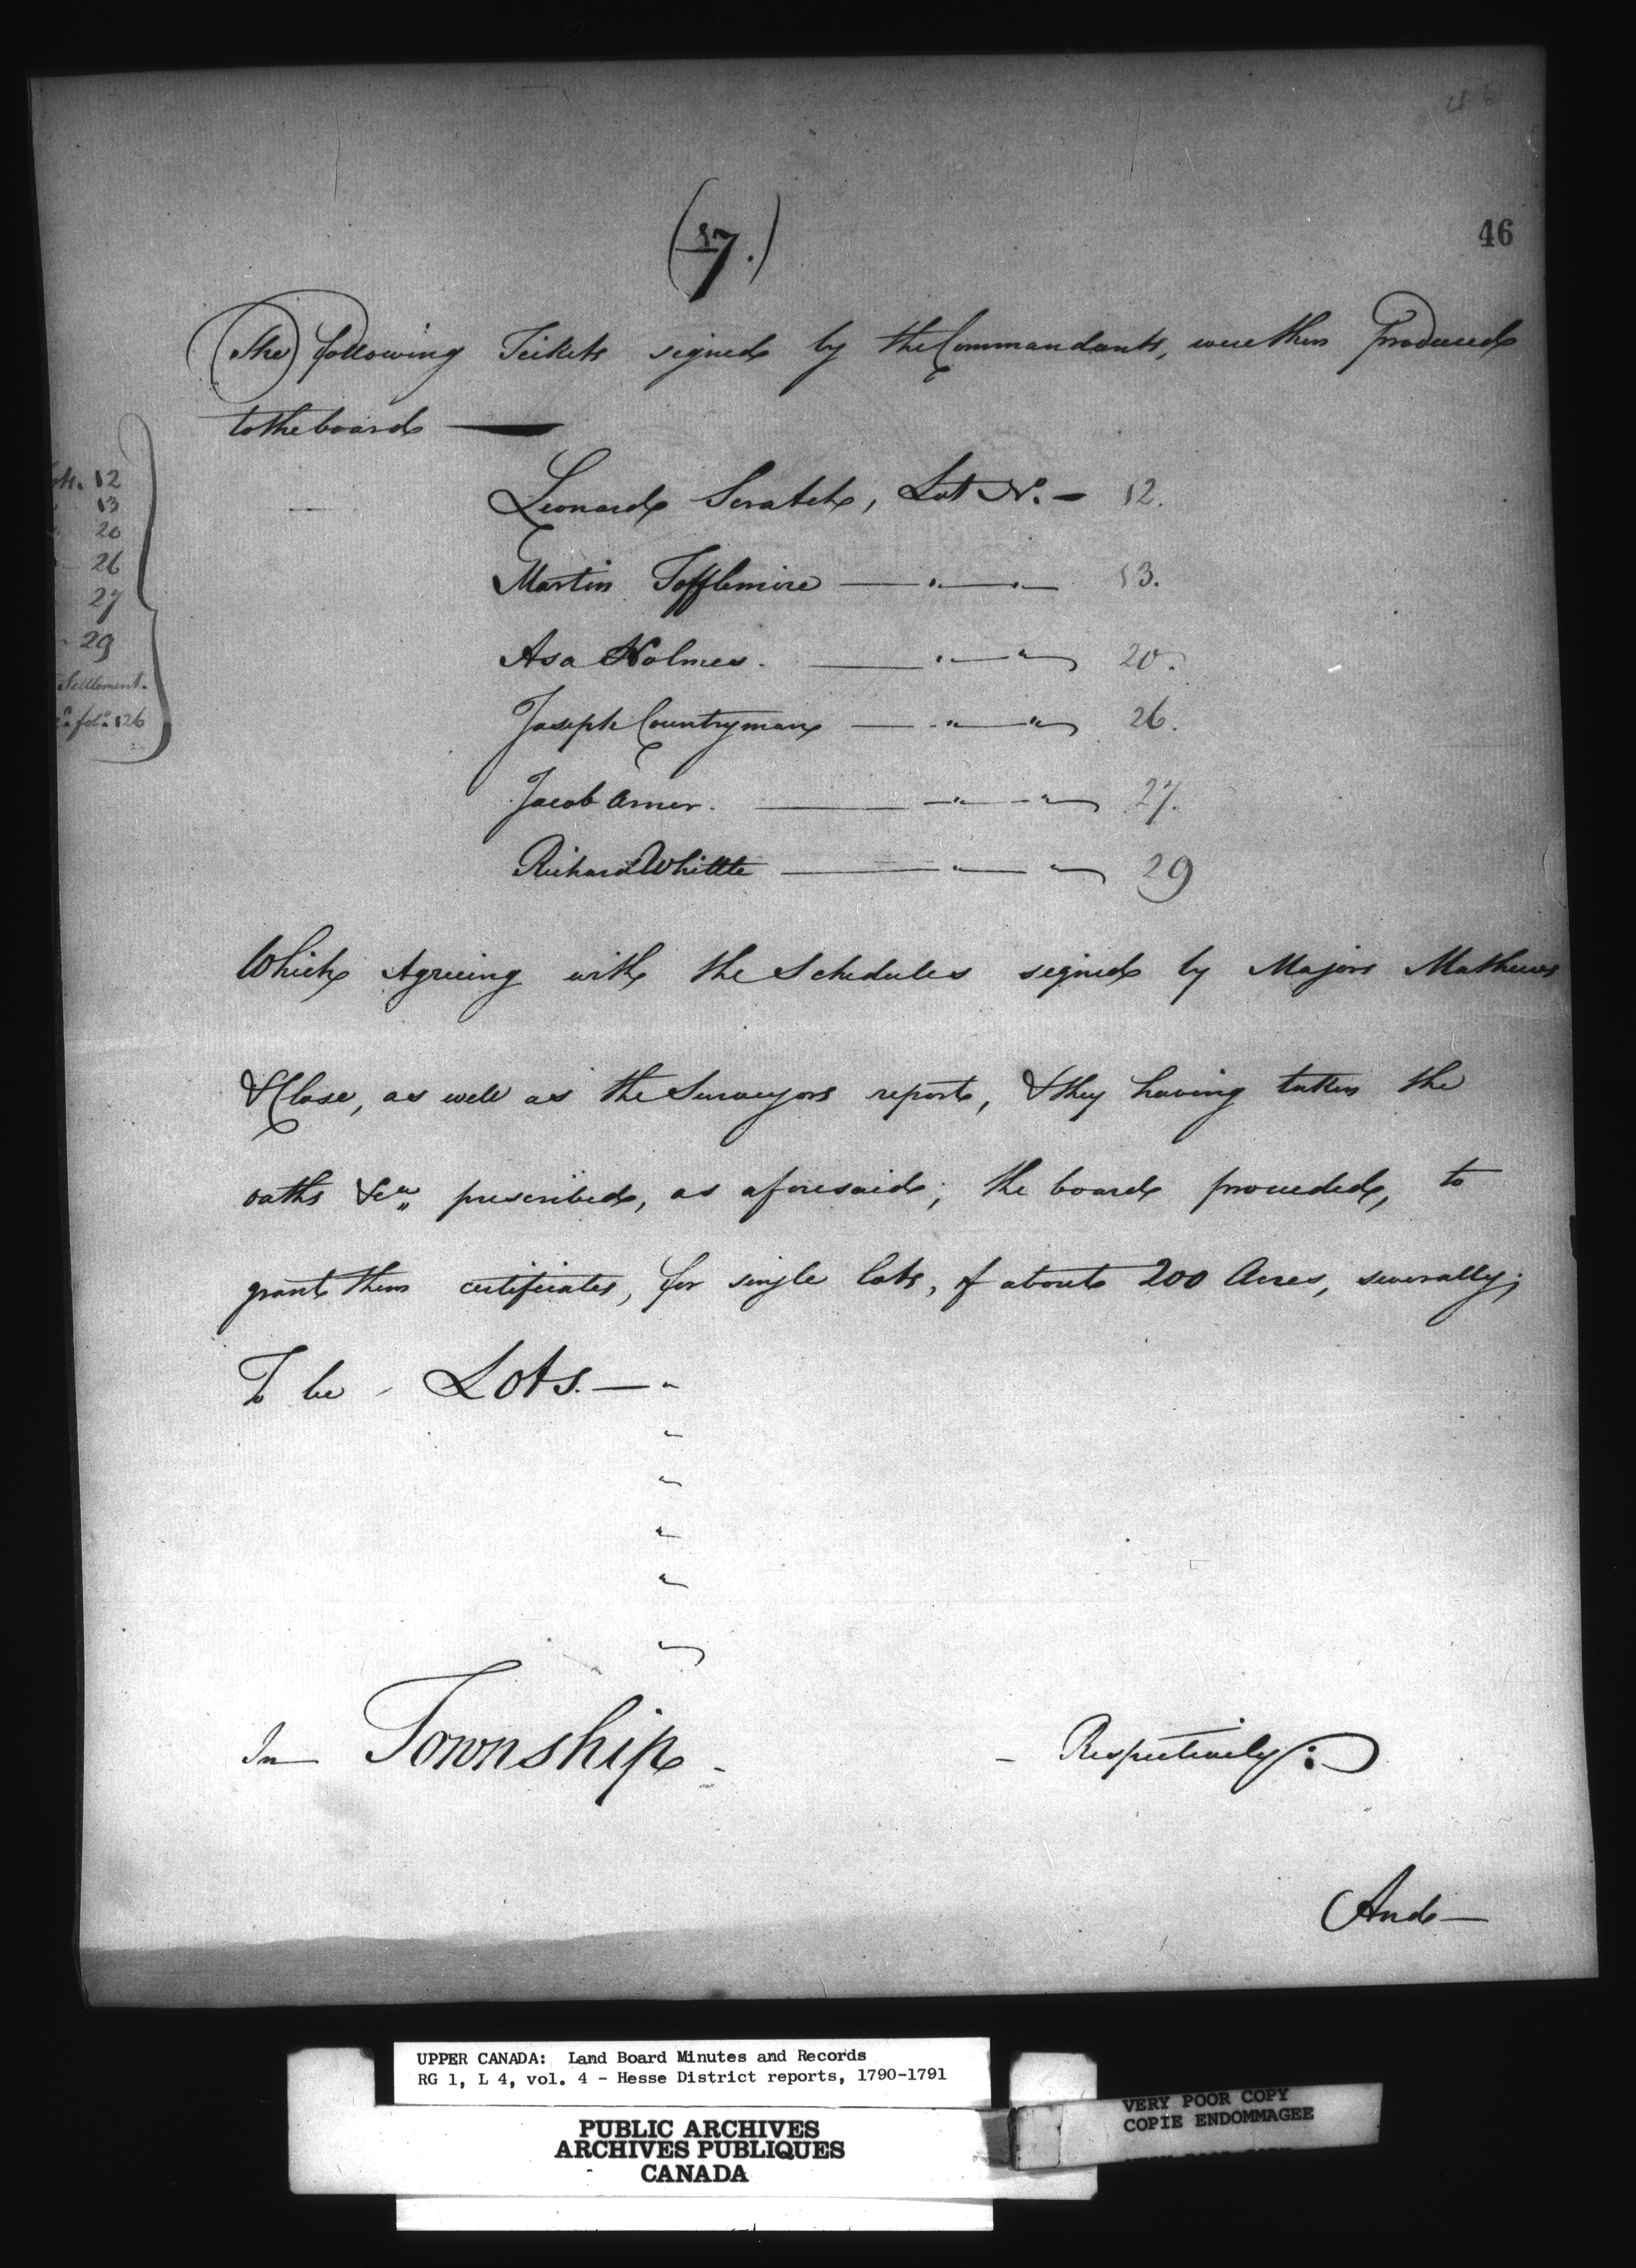 46
(7.)
The following Tickets signed by the Commandants, were then Produced
to the board —
Leonard Scratch, Lot No. — 12.
Martin Tofflemire — " — " — 13.
Asa Holmes. — " — " 20.
Joseph Countryman — " — " 26.
Jacob Arner. — " — " 27.
Richard Whittle — " — " 29
12
13
20
26
27
29
Settlement.
fol. 126
Which Agreeing with the Schedules signed by Majors Mathews
& Close, as well as the Surveyors report, & they having taken the
oaths &ca. prescribed, as aforesaid; the board proceeded, to
grant them certificates, for single lots, of about 200 Acres, severally;
To be - Lots. — "
"
"
"
"
"
In — Township - - Respectively:
And —
UPPER CANADA: Land Board Minutes and Records
RG 1, L 4, vol. 4 - Hesse District reports, 1790-1791
PUBLIC ARCHIVES
ARCHIVES PUBLIQUES
CANADA
VERY POOR COPY
COPIE ENDOMMAGEE